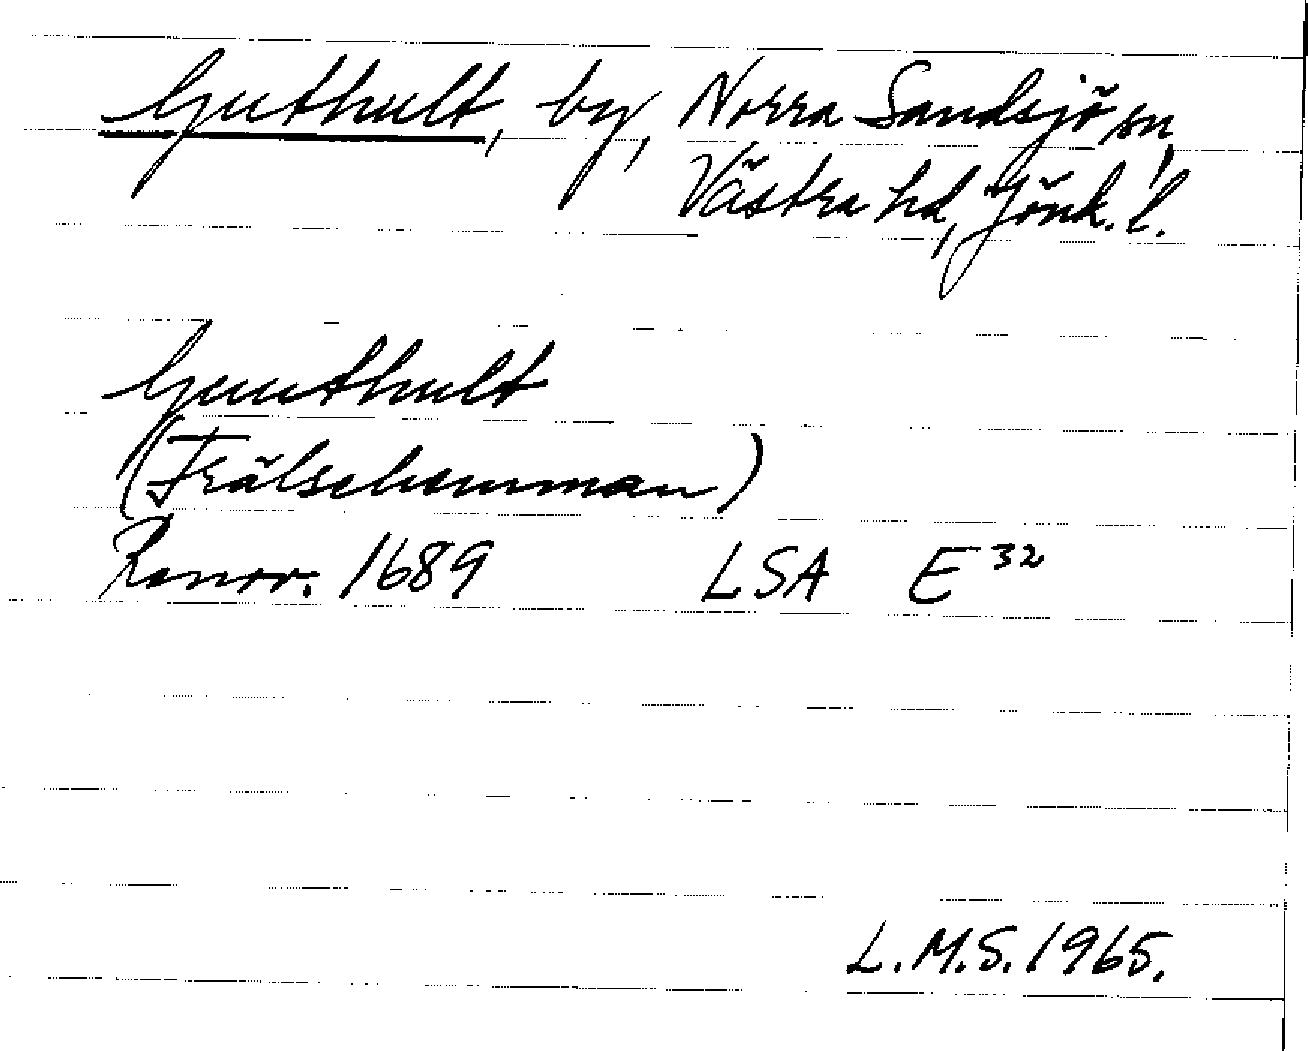 Guthult, by, Norra Sandsjö sn,
Västra hd, Jönk. l.
Gunthult
(Frälsehemman)
Renov. 1689 LSA E 32
L.M.S. 1965.